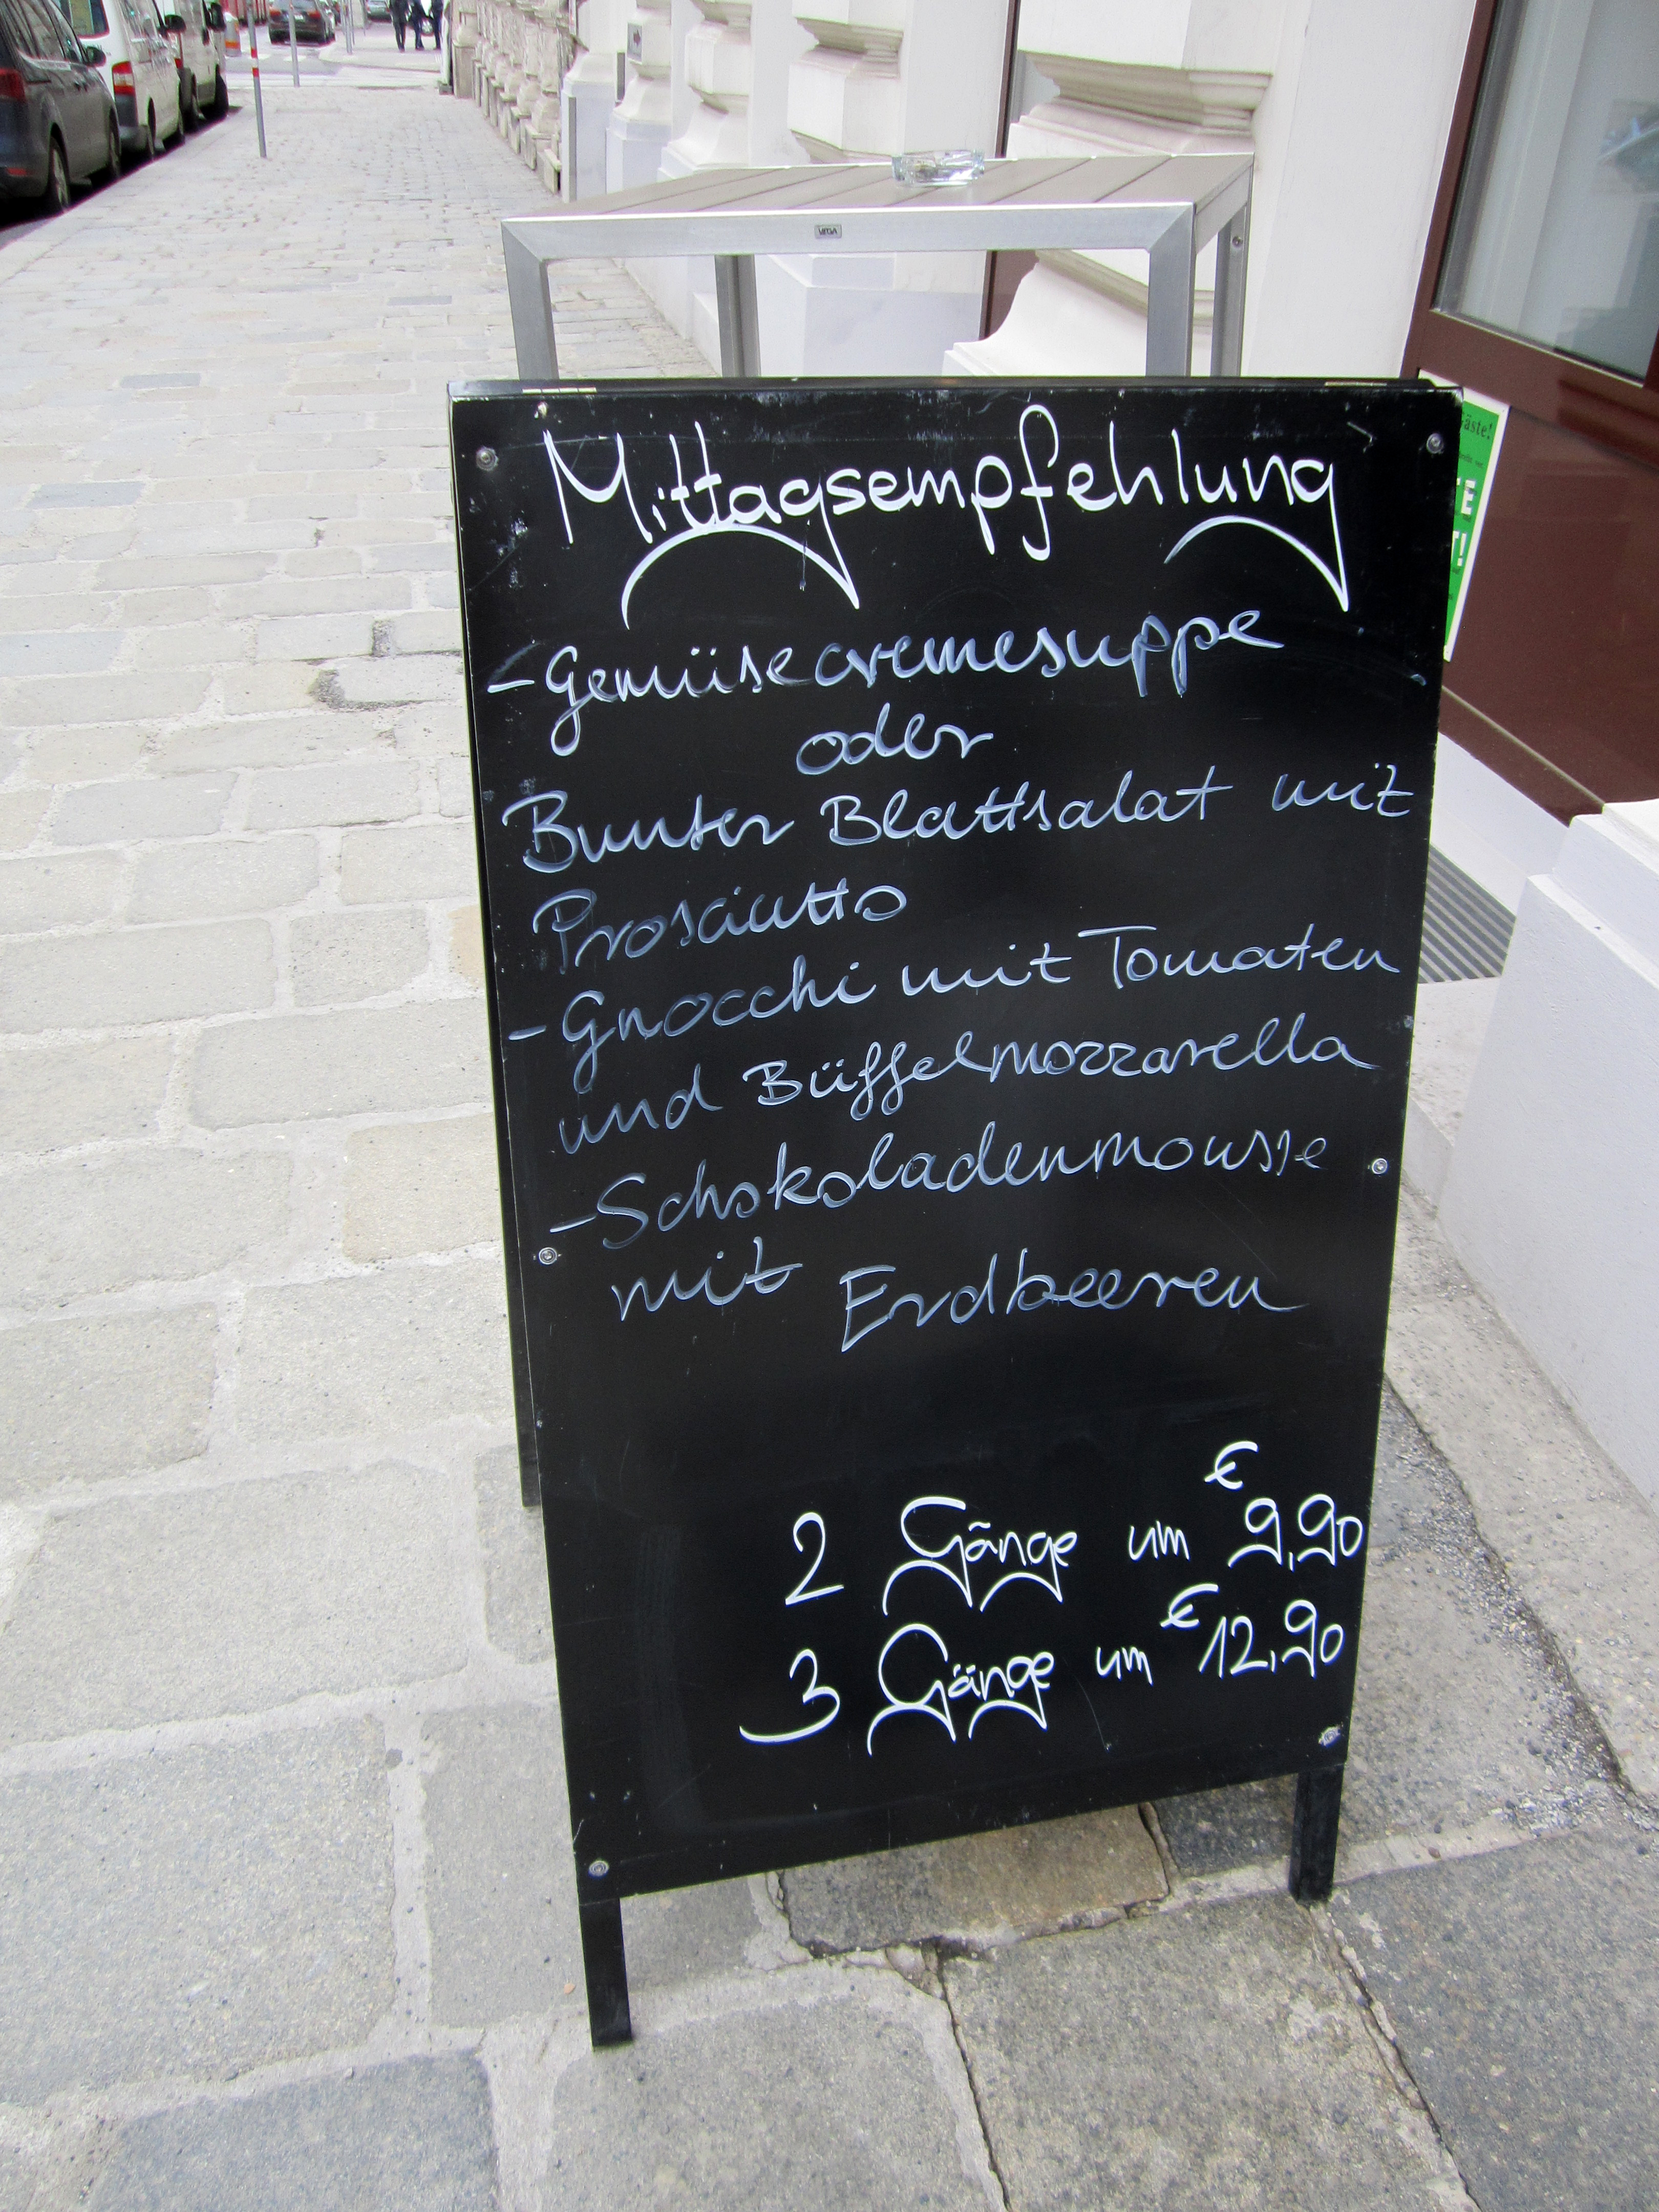 VEGA
Mittagsempfehlung
- Gemüsecremesuppe
oder
Bunter Blattsalat mit
Prosciutto
- Gnocchi mit Tomaten
und Büffelmozzarella
- Schokoladenmousse
mit Erdbeeren
2 Gänge um € 9,90
3 Gänge um € 12,90